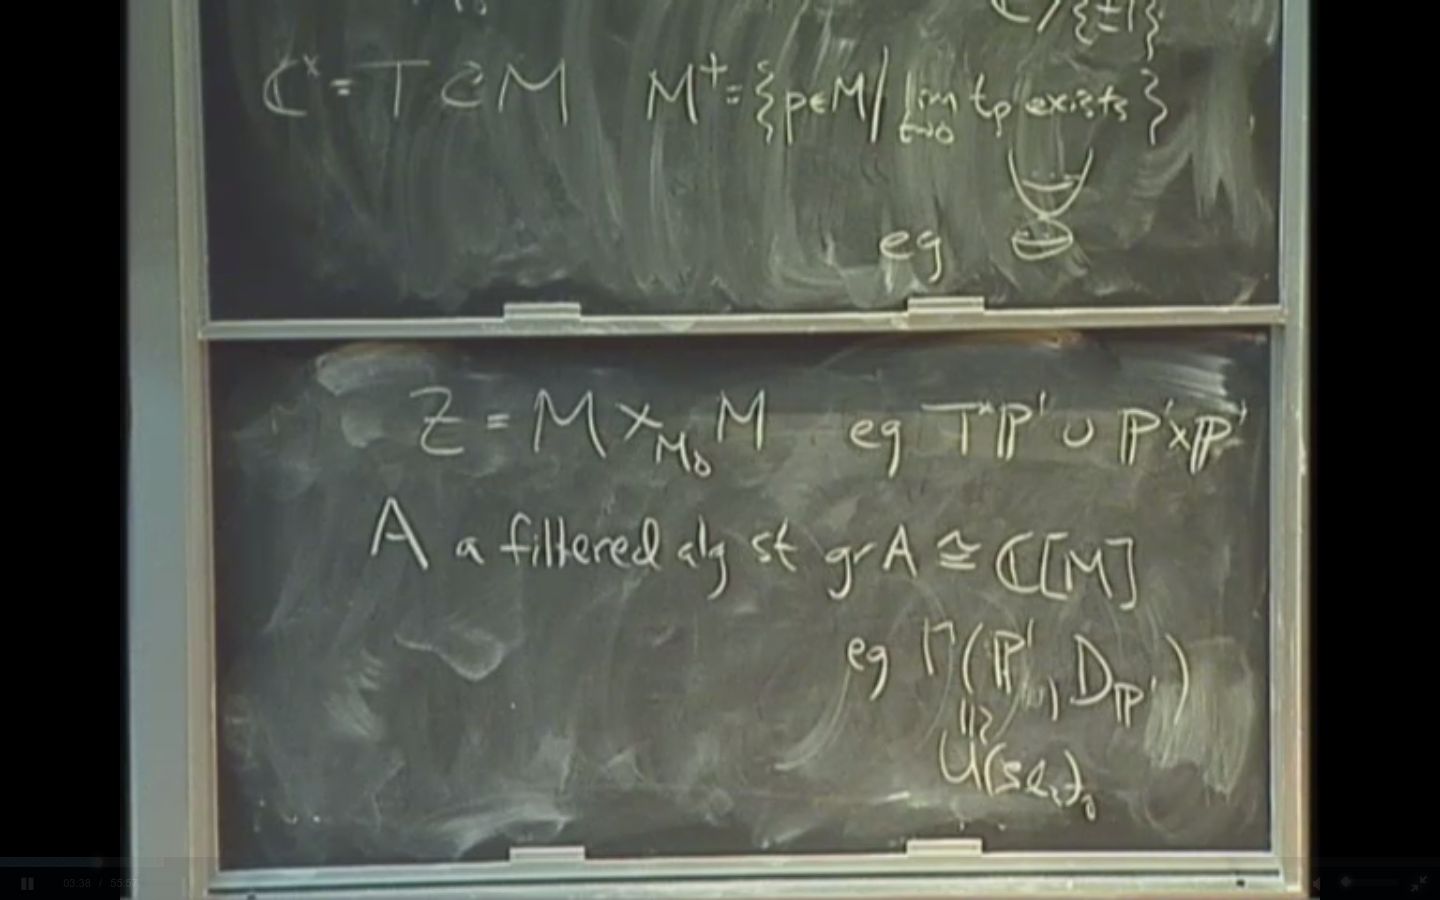 ℂ/{±1}
ℂˣ = T ⊂ M M⁺ = {p∈M / lim t→0 tp exists}
eg
Z = M ×_{M₀} M eg T*ℙ¹ ∪ ℙ¹×ℙ¹
A a filtered alg st gr A ≅ ℂ[M]
eg Γ(ℙ¹, D_{ℙ¹})
U(sl₂)₀
03:38 / 55:57